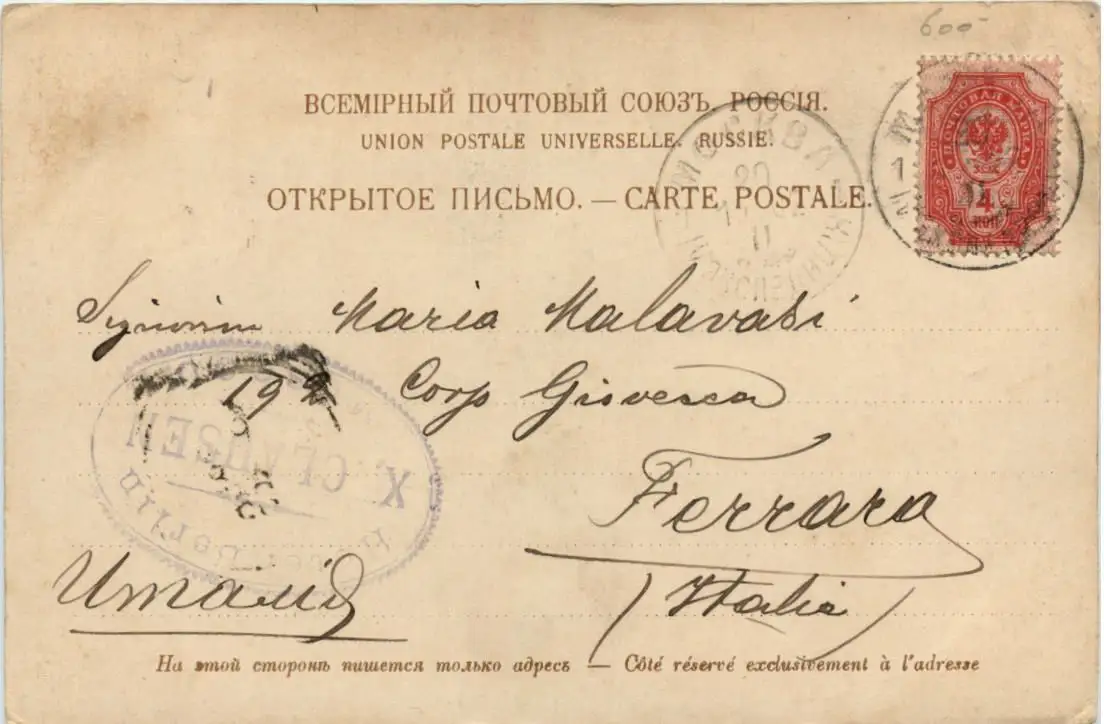 600
ВСЕМІРНЫЙ ПОЧТОВЫЙ СОЮЗЪ. РОССІЯ.
UNION POSTALE UNIVERSELLE. RUSSIE.
ОТКРЫТОЕ ПИСЬМО. — CARTE POSTALE.
ПОЧТОВАЯ МАРКА
4
КОП.
МОСКВА
20
II
Maria Malavasi
192 Corso Giovecca
Ferrara
X. CLAUSEN
Италія
(Italie)
На этой сторонѣ пишется только адресъ — Côté réservé exclusivement à l'adresse